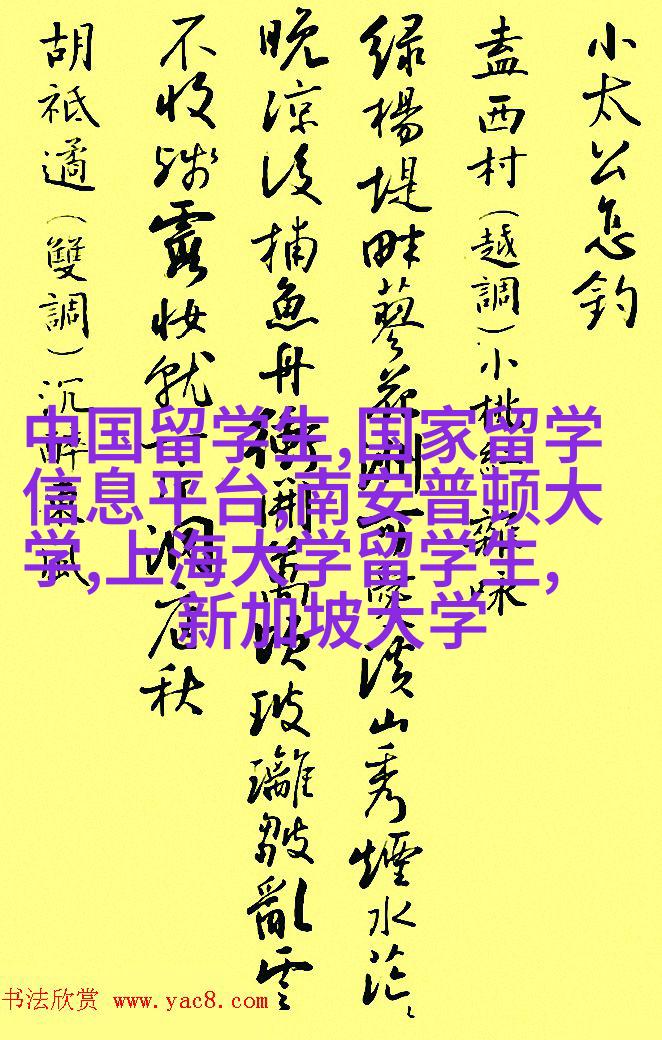 小太公怎钓
盍西村（越調）小桃紅 雜咏
绿楊堤畔蓼花洲可愛溪山秀煙水茫、
晚涼後捕魚舟衝開萬頃玻璃皺亂雲
不收残霞妝就一片洞庭秋
胡祗遹（雙調）沉醉東風
中国留学生,国家留学
信息平台,南安普顿大
学,上海大学留学生,
新加坡大学
书法欣赏 www.yac8.com